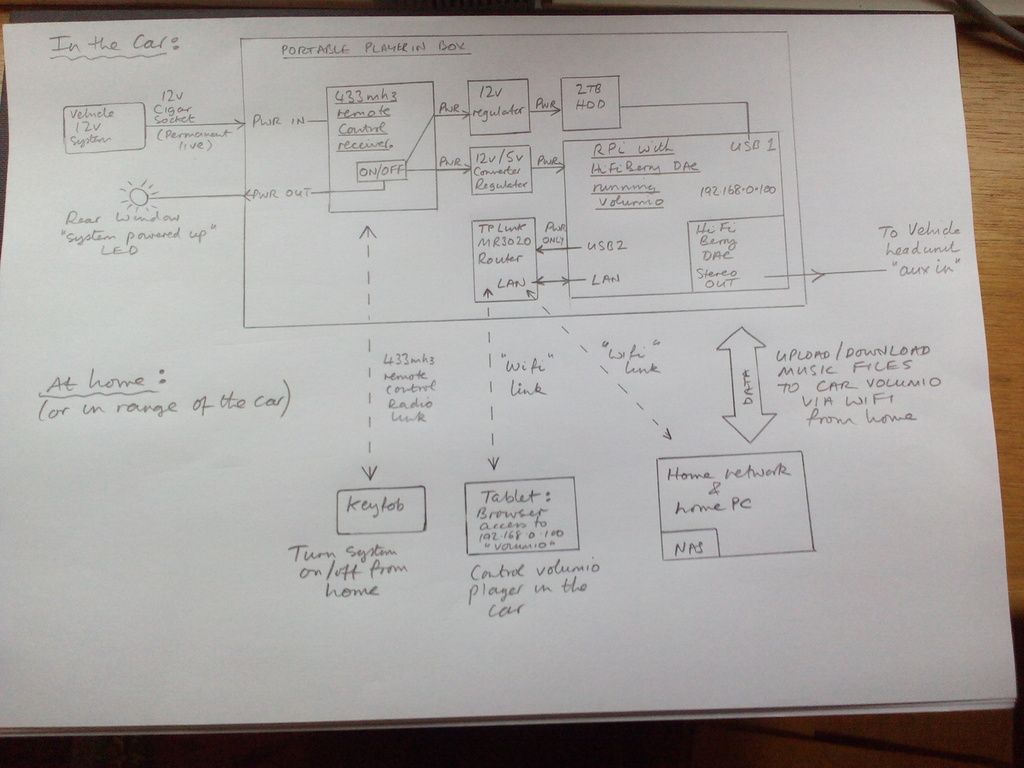 In the Car:
PORTABLE PLAYER IN BOX
Vehicle
12v
System
12v
Cigar
Socket
(Permanent
live)
PWR IN
433mhz
remote
control
receiver
ON/OFF
PWR
12v
regulator
PWR
2TB
HDD
PWR
12v/5v
Converter
Regulator
PWR
RPi with
HiFi Berry DAC
running
Volumio
USB 1
192.168.0.100
PWR OUT
Rear Window
"System powered up"
LED
TP Link
MR3020
Router
LAN
PWR
ONLY
USB2
LAN
HiFi
Berry
DAC
Stereo
OUT
To Vehicle
headunit
"aux in"
At home:
(or in range of the car)
433mhz
remote
control
Radio
link
"Wifi"
link
"Wifi"
link
DATA
UPLOAD/DOWNLOAD
MUSIC FILES
TO CAR VOLUMIO
VIA WIFI
from home
Keyfob
Turn System
on/off from
home
Tablet:
Browser
access to
192.168.0.100
"Volumio"
Control volumio
player in the
car
Home network
&
home PC
NAS